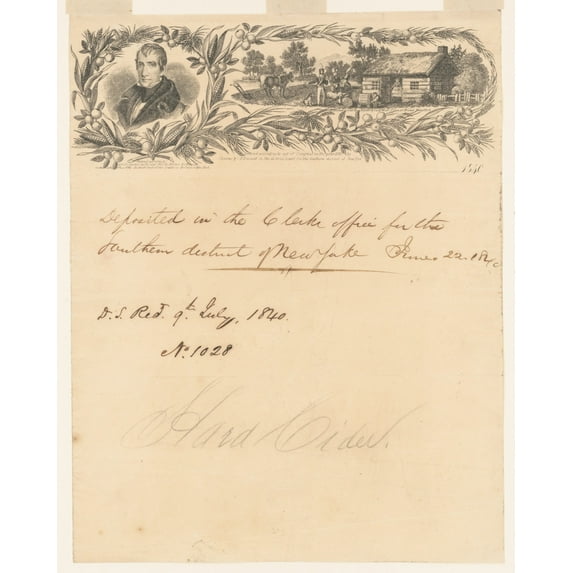 1840
Deposited in the Clerks office for the
Southern district of New York June 22. 1840
D. S. Recd. 9th July, 1840.
No. 1028
Hard Cider.